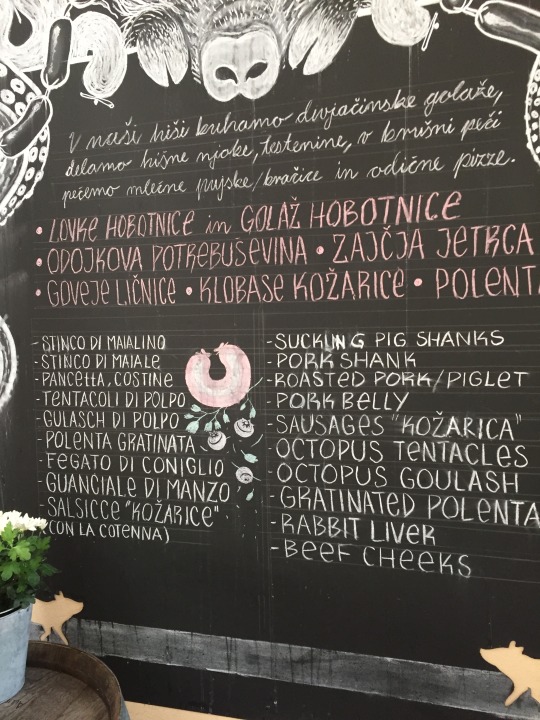 V naši hiši kuhamo divjačinske golaže,
delamo hišne njoke, testenine, v krušni peči
pečemo mlečne pujske/bračice in odične pizze.
• LOVKE HOBOTNICE in GOLAŽ HOBOTNICE
• ODOJKOVA POTREBUŠEVINA • ZAJČJA JETRCA
• GOVEJE LIČNICE • KLOBASE KOŽARICE • POLENT
- STINCO DI MAIALINO
- STINCO DI MAIALE
- PANCETTA, COSTINE
- TENTACOLI DI POLPO
- GULASCH DI POLPO
- POLENTA GRATINATA
- FEGATO DI CONIGLIO
- GUANCIALE DI MANZO
- SALSICCE "KOŽARICE"
(CON LA COTENNA)
- SUCKLING PIG SHANKS
- PORK SHANK
- ROASTED PORK/PIGLET
- PORK BELLY
- SAUSAGES "KOŽARICA"
- OCTOPUS TENTACLES
- OCTOPUS GOULASH
- GRATINATED POLENTA
- RABBIT LIVER
- BEEF CHEEKS